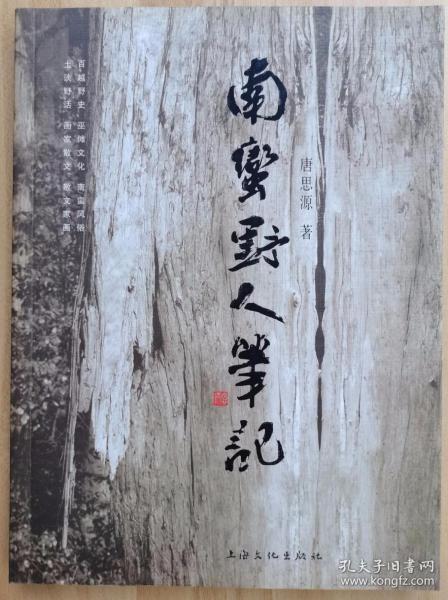 南蠻野人筆記
唐思源 著
百越野史 巫傩文化 南蛮风俗
土谈野话 画家散文 散文家画
上海文化出版社
孔夫子旧书网